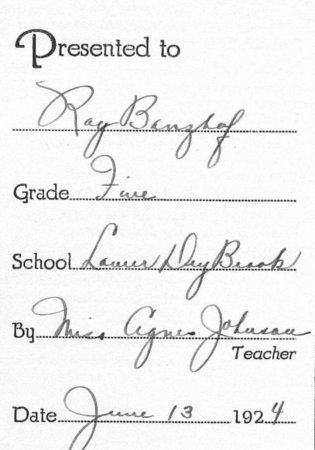 Presented to
Ray Banzhaf
Grade Five
School Lower Dry Brook
By Miss Agnes Johnson
Teacher
Date June 13 1924